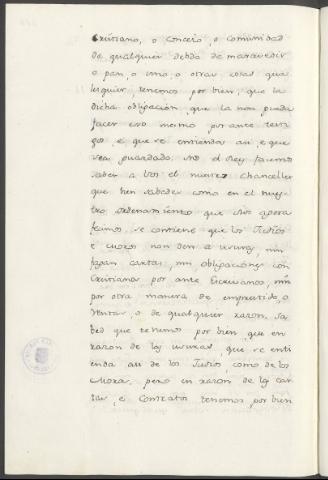 Cristiano, o Concejo, o Comunidad
de qualquier debda de maravedis
o pan, o vino, o otras cosas qua
lesquier, tenemos por bien, que la
dicha obligacion, que la non pueda
facer eso mesmo por ante testi
gos, e que se entienda asi, e que
sea guardado. Nos el Rey facemos
saber a Vos el nuestro Chanceller
que bien sabedes como en el nues
tro ordenamiento que Nos agora
feamos, se contiene que los Judios
e Moros non den a usura, nin
fagan cartas, nin obligaciones con
Cristianos por ante Escrivanos, nin
por otra manera de emprestido, o
Ventas, o de qualquier razon, sa
bed que tenemos por bien, que en
razon de las usuras, que se enti
enda asi de los Judios, como de los
Moros, pero en razon de las car
tas, e Contratos tenemos por bien